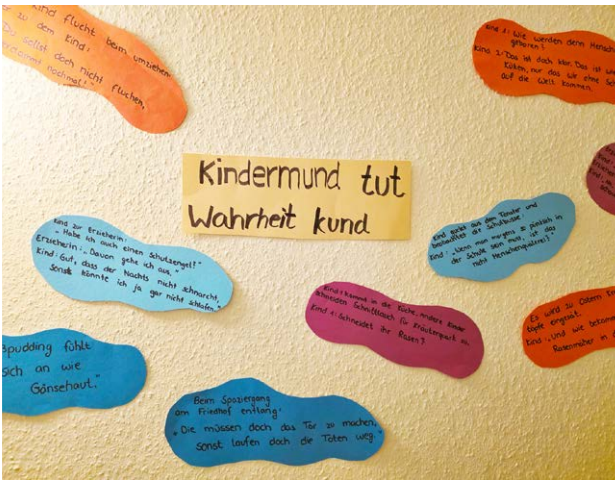 Kind flucht beim umziehen
zu dem Kind:
Du sollst doch nicht fluchen,
nochmal!"
Kind 1: Wie werden denn Mensch
geboren?
Kind 2: Das ist doch klar. Das ist wie
Küken, nur das wir ohne Sch
auf die Welt kommen.
Kindermund tut
Wahrheit kund
Kind zur Erzieherin:
"Habe ich auch einen Schutzengel?"
Erzieherin: "Davon gehe ich aus."
Kind: Gut, dass der Nachts nicht schnarcht,
sonst könnte ich ja gar nicht schlafen."
Kind guckt aus dem Fenster und
beobachtet die Schulkinder.
Kind: "Wenn man morgens so pünktlich in
der Schule sein muss, ist das
nicht Menschenquälerei?"
Kind 1 kommt in die Küche, andere Kinder
schneiden Schnittlauch für Kräuterquark
Kind 1: Schneidet ihr Rasen?
Es wird zu Ostern
töpfe eingesät.
Kind: "Und wie bekomm
Rasenmäher in d
pudding fühlt
sich an wie
Gänsehaut."
Beim Spaziergang
am Friedhof entlang:
"Die müssen doch das Tor zu machen,
sonst laufen doch die Toten weg.